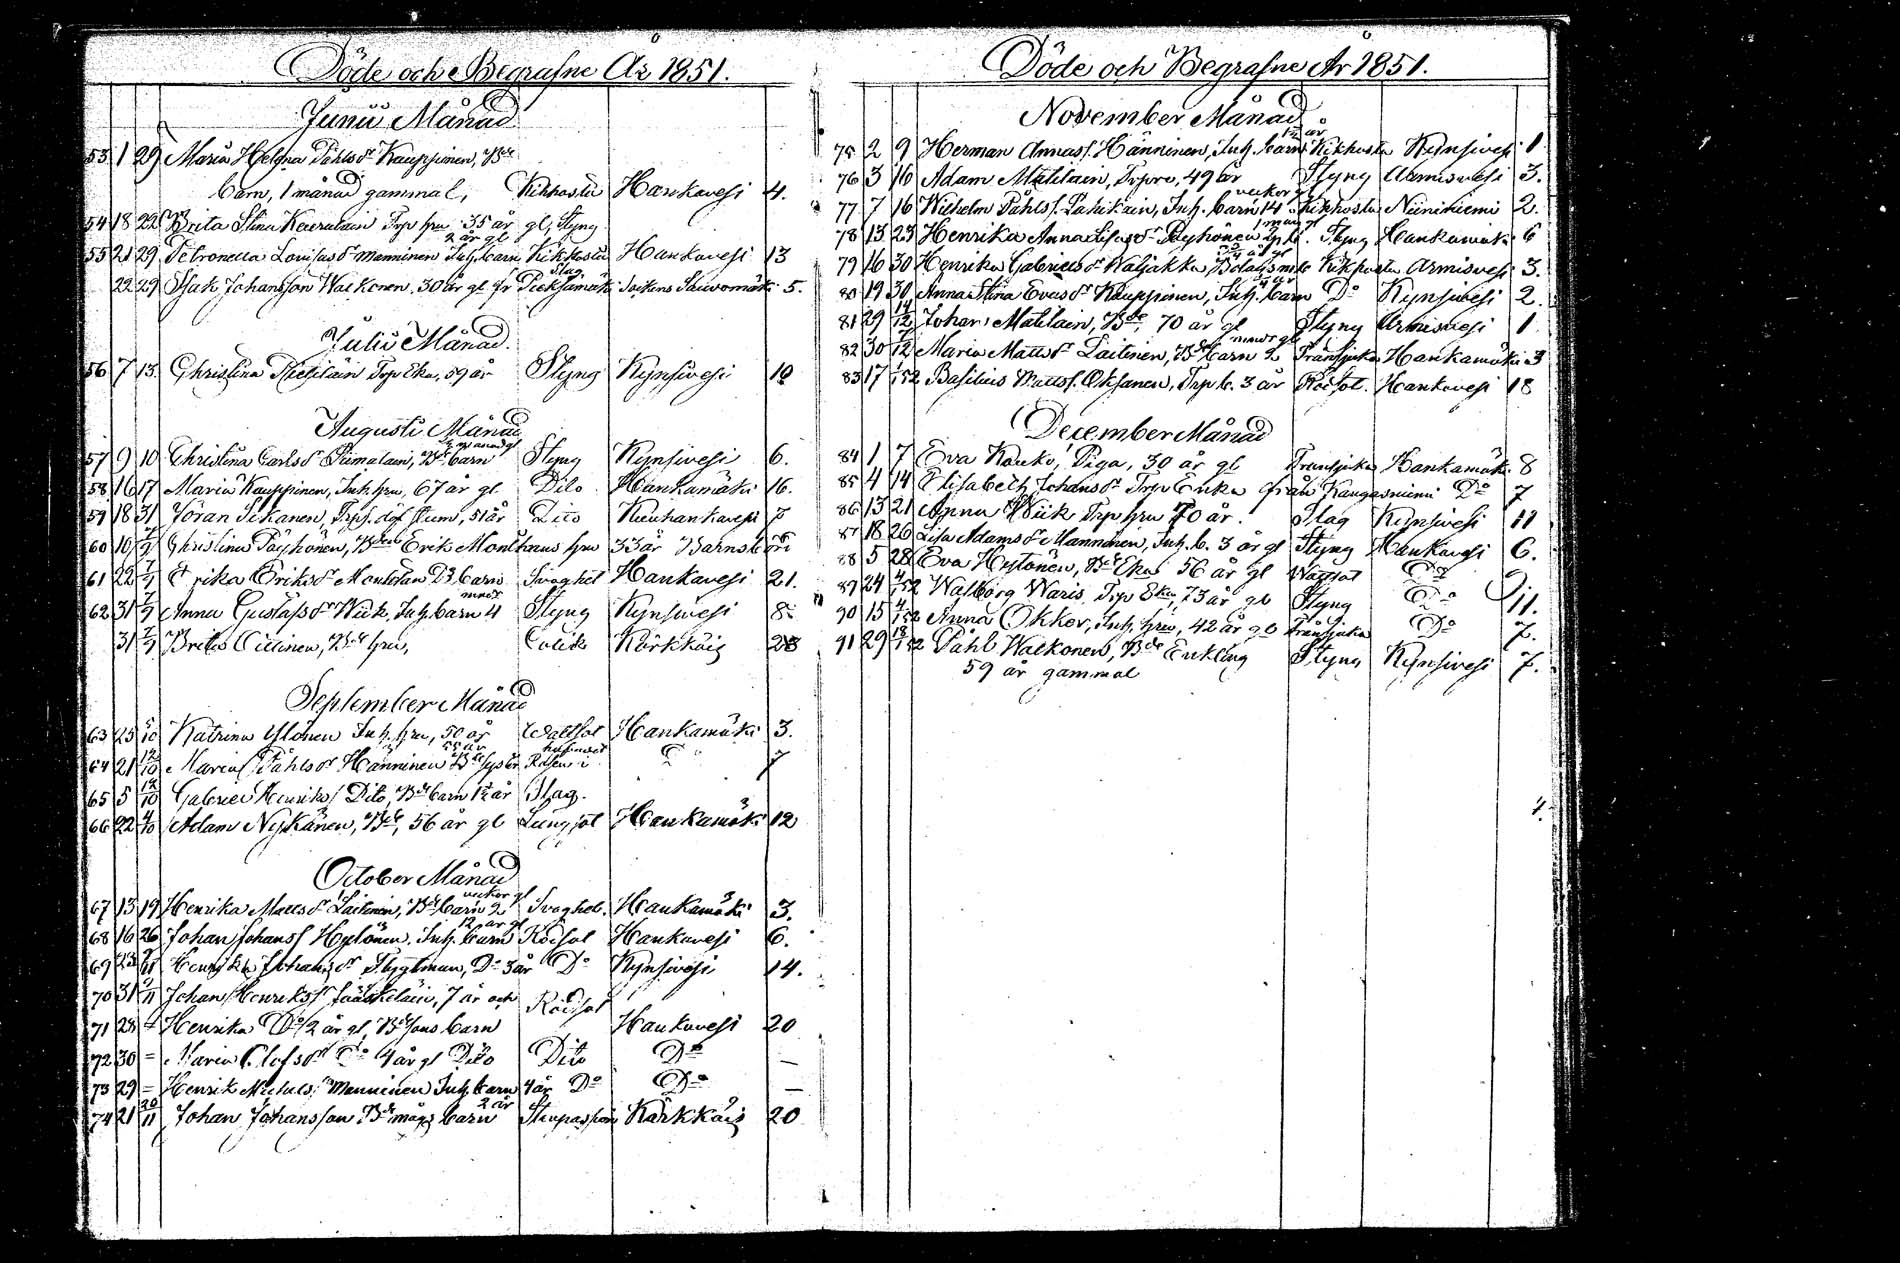 Döde och Begrafne År 1851.
Junii Månad
53 1 29 Maria Helena Påhlsdr Kauppinen, Bde
barn, 1 månad gammal, Kikhosta Hankavesi 4.
54 18 22 Brita Stina Trp hru 35 år gl, Styng
2 år gl
55 21 29 Petronella Lovisas dr Manninen Inh. barn Kikhosta Hankavesi 13
Slag
22 29 Isak Johansson Walkonen 30 år gl fr Pieksämäki 5.
Julii Månad.
56 7 13 Christina Trp Eka, 59 år Styng Kynsivesi 10
Augusti Månad
57 9 10 Christina Carlsdr Bde barn Styng Kynsivesi 6.
58 16 17 Maria Kauppinen, Inh. hru, 67 år gl Dito Hankamäki 16.
59 18 31 Jöran Ikanen, Trps. döf stum, 51 år Dito 7
60 10 7/9 Christina Pöyhönen, Bden Erik hru 33 år Barnsbörd
61 22 7/9 Erika Eriksdr Bd barn Svaghet Hankavesi 21.
mndr
62 31 7/9 Anna Gustafsdr Wiik, Inh. barn 4 Styng Kynsivesi 8
31 7/9 Brita Bde hru, Colik Kärkkäis 28
September Månad
63 25 5/10 Katrina Ylönen Inh. hru, 50 år Wattsot Hankamäki 3.
55 år hufvudet
64 21 12/10 Maria Påhlsdr Hänninen Bds syster Rosen i Do 7
65 5 12/10 Gabriel Henriks Dito, Bde barn 1½ år Slag.
66 22 4/10 Adam Nykänen, Bde, 56 år gl Lungsot Hankamäki 12
October Månad
veckor gl
67 13 19 Henrika Mattsdr Laitinen, Bde barn 2 Svaghet. Hankamäki 3.
12 år gl
68 16 26 Johan Johanss Hytönen. Inh. barn Rödsot Hankavesi 6.
69 23 Henrika Johans dr Styggman, Do 3 år Do Kynsivesi 14.
70 31 Johan Henrikss Jääskeläin, 7 år och Rödsot
71 28 = Henrika Do 2 år gl, Bde sons barn Hankavesi 20
72 30 = Maria Olofsdr Do 4 år gl Dito Dito Do —
73 29 = Henrik Michels Manninen Inh. barn 4 år Do Do —
2 år
74 21 20/11 Johan Johansson Bde mågs barn Strypsjuka Kärkkäis 20
Döde och Begrafne År 1851.
November Månad
1½ år
75 2 9 Herman Annas s. Hänninen, Inh. barn Kikhosta Kynsivesi 1
76 3 16 Adam Matilain, Trpre, 49 år Styng Armisvesi 3.
veckor gl
77 7 16 Wilhelm Påhls s. Inh. barn 14 Kikhosta Niinikiemi 2.
1 mån gl
78 13 23 Henrika Anna Lisas dr Pöyhönen Styng Hankamäki 6
79 16 30 Henrika Gabriels dr Waljakka Bolagsmds Kikhosta Armisvesi 3.
80 19 30 Anna Stina Evas dr Kauppinen, Inh. barn Do Kynsivesi 2.
81 29 14/12 Johan Matilain, Bde, 70 år gl Styng Armisvesi 1
mndr gl
82 30 7/12 Maria Matts dr Laitinen, Bde barn 2 Fransjuka Hankamäki 3
83 17 1/152 Basilius Matts s. Oksanen, Trp b. 3 år Rödsot. Hankavesi 18
December Månad
84 1 7 Eva Kauko, Piga, 30 år gl Fransjuka Hankamäki 8
85 4 14 Elisabeth Johans dr Trp Enka från Kangasniemi Do 7
86 13 21 Anna Wiik Trp hru 70 år. Slag Kynsivesi 11
87 18 26 Lisa Adams dr Manninen, Inh. b. 3 år gl Styng Hankavesi 6.
88 5 28 Eva Hytönen, Bde Eka 56 år gl Wattsot Do 9
89 24 4/152 Walborg Waris Trp Eka, 73 år gl Styng Do 11.
90 15 4/152 Anna Okker, Inh. hru, 42 år gl Fransjuka Do 7.
91 29 18/152 Påhl Walkonen, Bde Enkling Styng Kynsivesi 7.
59 år gammal
4.